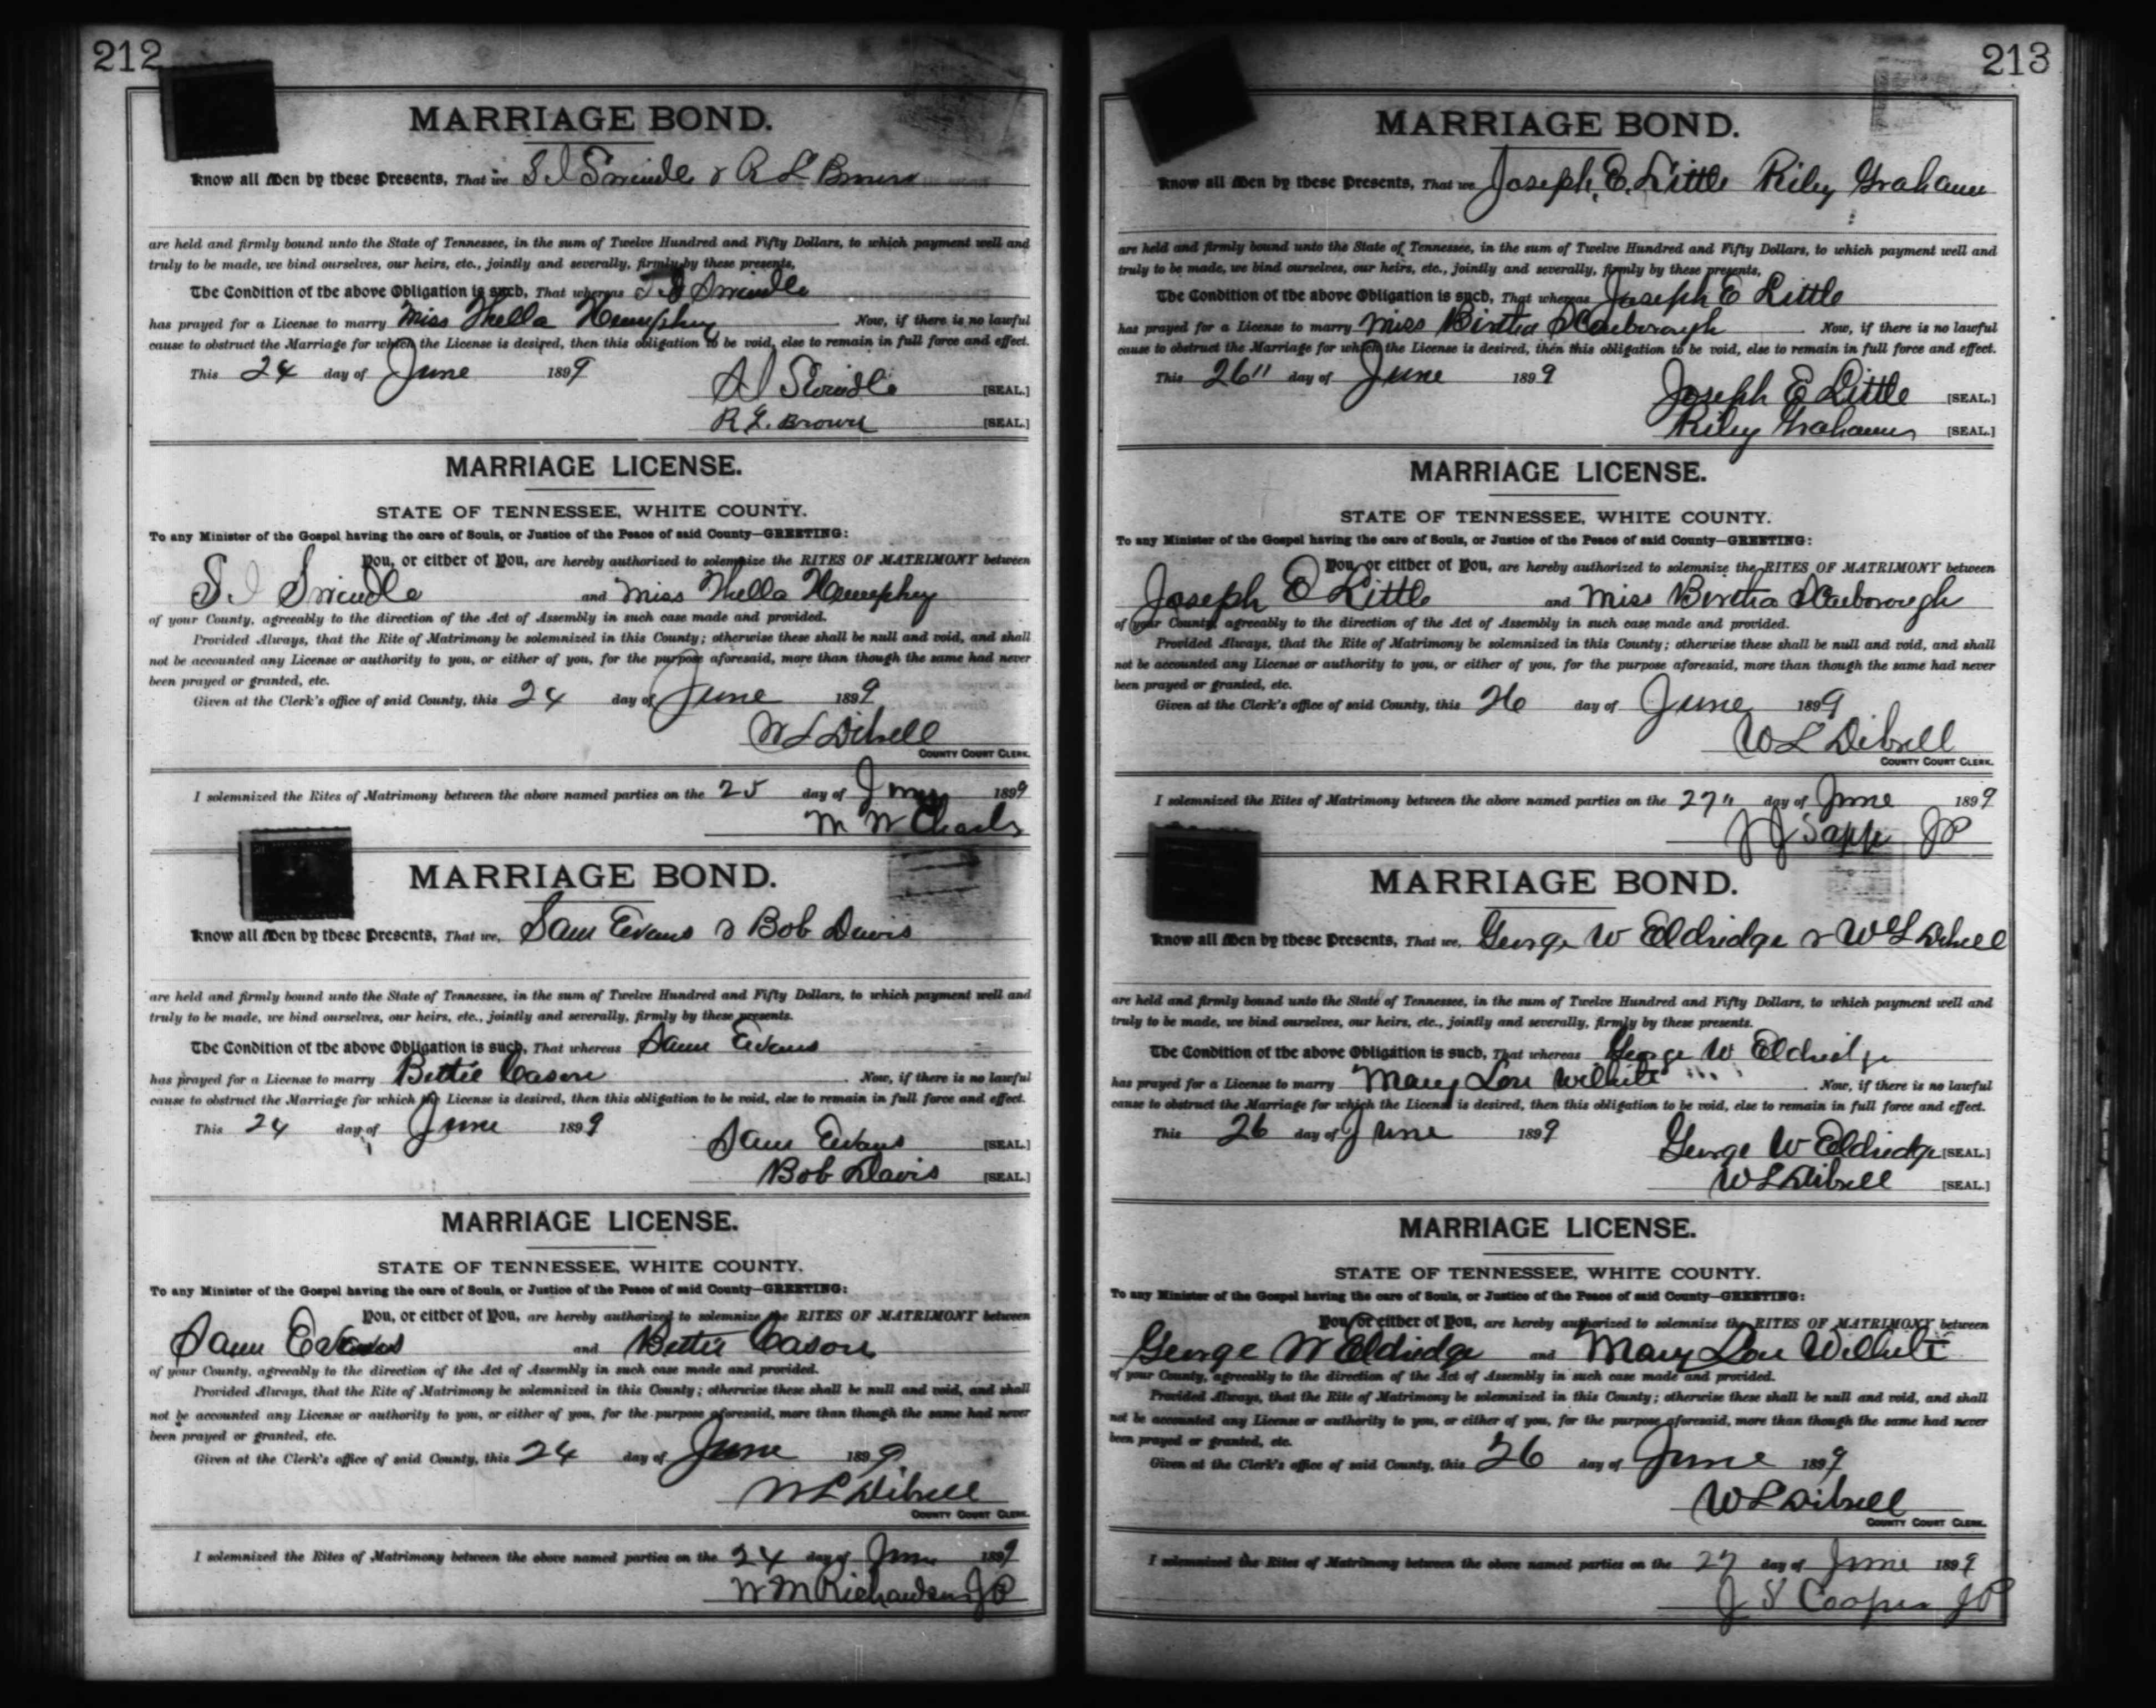 212
MARRIAGE BOND.
Know all Men by these Presents, That we S J Swindle & R L Brown
are held and firmly bound unto the State of Tennessee, in the sum of Twelve Hundred and Fifty Dollars, to which payment well and
truly to be made, we bind ourselves, our heirs, etc., jointly and severally, firmly by these presents,
The Condition of the above Obligation is such, That whereas Swindle
has prayed for a License to marry Miss Humphrey Now, if there is no lawful
cause to obstruct the Marriage for which the License is desired, then this obligation to be void, else to remain in full force and effect.
This 24 day of June 1899
Swindle [SEAL.]
R L. Brown [SEAL.]
MARRIAGE LICENSE.
STATE OF TENNESSEE, WHITE COUNTY.
To any Minister of the Gospel having the care of Souls, or Justice of the Peace of said County—GREETING:
You, or either of You, are hereby authorized to solemnize the RITES OF MATRIMONY between
S J Swindle and Miss Humphrey
of your County, agreeably to the direction of the Act of Assembly in such case made and provided.
Provided Always, that the Rite of Matrimony be solemnized in this County; otherwise these shall be null and void, and shall
not be accounted any License or authority to you, or either of you, for the purpose aforesaid, more than though the same had never
been prayed or granted, etc.
Given at the Clerk's office of said County, this 24 day of June 1899
W L Dibrell
COUNTY COURT CLERK.
I solemnized the Rites of Matrimony between the above named parties on the 25 day of June 1899
M W
MARRIAGE BOND.
Know all Men by these Presents, That we, Sam Evans & Bob Davis
are held and firmly bound unto the State of Tennessee, in the sum of Twelve Hundred and Fifty Dollars, to which payment well and
truly to be made, we bind ourselves, our heirs, etc., jointly and severally, firmly by these presents.
The Condition of the above Obligation is such, That whereas Sam Evans
has prayed for a License to marry Bettie Cason . Now, if there is no lawful
cause to obstruct the Marriage for which the License is desired, then this obligation to be void, else to remain in full force and effect.
This 24 day of June 1899
Sam Evans [SEAL.]
Bob Davis [SEAL.]
MARRIAGE LICENSE.
STATE OF TENNESSEE, WHITE COUNTY.
To any Minister of the Gospel having the care of Souls, or Justice of the Peace of said County—GREETING:
You, or either of You, are hereby authorized to solemnize the RITES OF MATRIMONY between
Sam Evans and Bettie Cason
of your County, agreeably to the direction of the Act of Assembly in such case made and provided.
Provided Always, that the Rite of Matrimony be solemnized in this County; otherwise these shall be null and void, and shall
not be accounted any License or authority to you, or either of you, for the purpose aforesaid, more than though the same had never
been prayed or granted, etc.
Given at the Clerk's office of said County, this 24 day of June 1899
W L Dibrell
COUNTY COURT CLERK.
I solemnized the Rites of Matrimony between the above named parties on the 24 day of June 1899
W M Richardson JP
213
MARRIAGE BOND.
Know all Men by these Presents, That we Joseph E. Little Riley Graham
are held and firmly bound unto the State of Tennessee, in the sum of Twelve Hundred and Fifty Dollars, to which payment well and
truly to be made, we bind ourselves, our heirs, etc., jointly and severally, firmly by these presents,
The Condition of the above Obligation is such, That whereas Joseph E Little
has prayed for a License to marry Miss Birtha Scarborough . Now, if there is no lawful
cause to obstruct the Marriage for which the License is desired, then this obligation to be void, else to remain in full force and effect.
This 26" day of June 1899
Joseph E Little [SEAL.]
Riley Graham [SEAL.]
MARRIAGE LICENSE.
STATE OF TENNESSEE, WHITE COUNTY.
To any Minister of the Gospel having the care of Souls, or Justice of the Peace of said County—GREETING:
You, or either of You, are hereby authorized to solemnize the RITES OF MATRIMONY between
Joseph E Little and Miss Birtha Scarborough
of your County, agreeably to the direction of the Act of Assembly in such case made and provided.
Provided Always, that the Rite of Matrimony be solemnized in this County; otherwise these shall be null and void, and shall
not be accounted any License or authority to you, or either of you, for the purpose aforesaid, more than though the same had never
been prayed or granted, etc.
Given at the Clerk's office of said County, this 26 day of June 1899
W L Dibrell
COUNTY COURT CLERK.
I solemnized the Rites of Matrimony between the above named parties on the 27" day of June 1899
J J Sapp JP
MARRIAGE BOND.
Know all Men by these Presents, That we, George W Eldridge & W L Dibrell
are held and firmly bound unto the State of Tennessee, in the sum of Twelve Hundred and Fifty Dollars, to which payment well and
truly to be made, we bind ourselves, our heirs, etc., jointly and severally, firmly by these presents.
The Condition of the above Obligation is such, That whereas George W Eldridge
has prayed for a License to marry Mary Lou Wilhite . Now, if there is no lawful
cause to obstruct the Marriage for which the License is desired, then this obligation to be void, else to remain in full force and effect.
This 26 day of June 1899
George W Eldridge [SEAL.]
W L Dibrell [SEAL.]
MARRIAGE LICENSE.
STATE OF TENNESSEE, WHITE COUNTY.
To any Minister of the Gospel having the care of Souls, or Justice of the Peace of said County—GREETING:
You, or either of You, are hereby authorized to solemnize the RITES OF MATRIMONY between
George W Eldridge and Mary Lou Wilhite
of your County, agreeably to the direction of the Act of Assembly in such case made and provided.
Provided Always, that the Rite of Matrimony be solemnized in this County; otherwise these shall be null and void, and shall
not be accounted any License or authority to you, or either of you, for the purpose aforesaid, more than though the same had never
been prayed or granted, etc.
Given at the Clerk's office of said County, this 26 day of June 1899
W L Dibrell
COUNTY COURT CLERK.
I solemnized the Rites of Matrimony between the above named parties on the 27 day of June 1899
J S Cooper JP